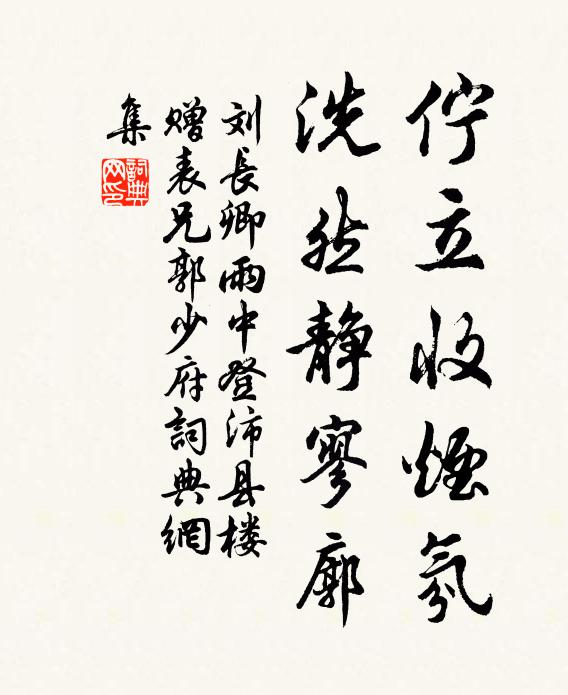 佇立收煙氛
洗然靜寥廓
刘長卿雨中登沛县楼
贈表兄郭少府詞典網
集
詞典網印